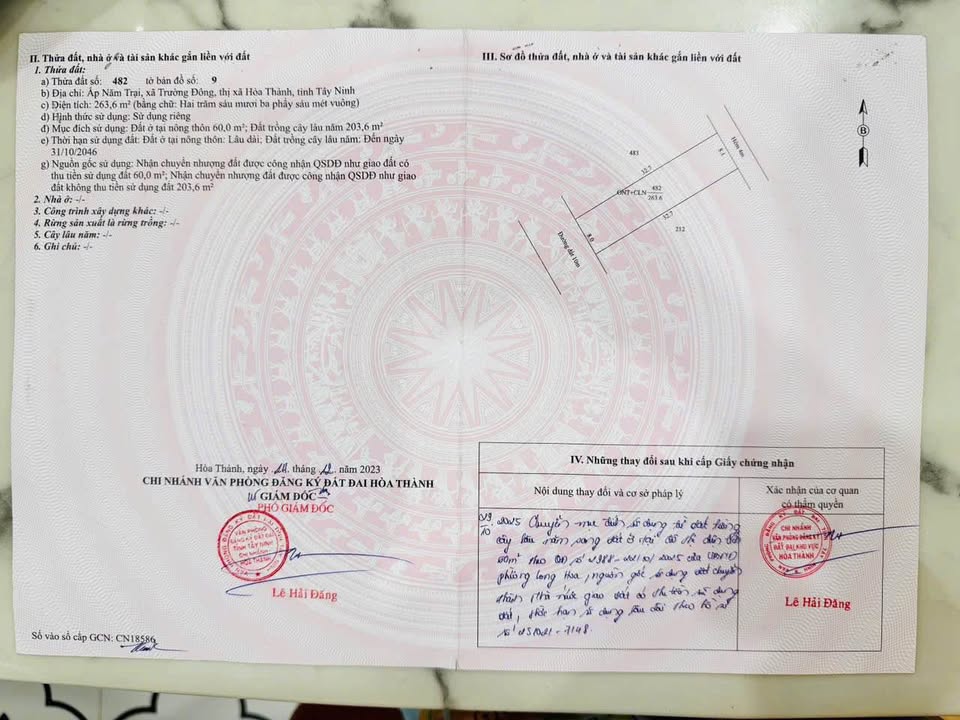 II. Thửa đất, nhà ở và tài sản khác gắn liền với đất
1. Thửa đất:
a) Thửa đất số: 482 tờ bản đồ số: 9
b) Địa chỉ: Ấp Năm Trại, xã Trường Đông, thị xã Hòa Thành, tỉnh Tây Ninh
c) Diện tích: 263,6 m² (bằng chữ: Hai trăm sáu mươi ba phẩy sáu mét vuông)
d) Hình thức sử dụng: Sử dụng riêng
đ) Mục đích sử dụng: Đất ở tại nông thôn 60,0 m²; Đất trồng cây lâu năm 203,6 m²
e) Thời hạn sử dụng đất: Đất ở tại nông thôn: Lâu dài; Đất trồng cây lâu năm: Đến ngày
31/10/2046
g) Nguồn gốc sử dụng: Nhận chuyển nhượng đất được công nhận QSDĐ như giao đất có
thu tiền sử dụng đất 60,0 m²; Nhận chuyển nhượng đất được công nhận QSDĐ như giao
đất không thu tiền sử dụng đất 203,6 m²
2. Nhà ở: -/-
3. Công trình xây dựng khác: -/-
4. Rừng sản xuất là rừng trồng: -/-
5. Cây lâu năm: -/-
6. Ghi chú: -/-
Hòa Thành, ngày tháng 12 năm 2023
CHI NHÁNH VĂN PHÒNG ĐĂNG KÝ ĐẤT ĐAI HÒA THÀNH
GIÁM ĐỐC
PHÓ GIÁM ĐỐC
VĂN PHÒNG
ĐĂNG KÝ ĐẤT ĐAI
TỈNH TÂY NINH
CHI NHÁNH
HÒA THÀNH
Lê Hải Đăng
Số vào sổ cấp GCN: CN18586
III. Sơ đồ thửa đất, nhà ở và tài sản khác gắn liền với đất
B
483
32.7
8.1
Hẻm 4m
ONT+CLN 482
263.6
32.7
212
8.0
Đường đất 10m
IV. Những thay đổi sau khi cấp Giấy chứng nhận
Nội dung thay đổi và cơ sở pháp lý
Xác nhận của cơ quan
có thẩm quyền
2025 Chuyển mục đích sử dụng từ đất trồng
cây lâu năm sang đất ở tại đô thị diện tích
theo QĐ số 2025 của UBND
phường Long Hoa, nguồn gốc sử dụng đất chuyển
thành Nhà nước giao đất có thu tiền sử dụng
đất, thời hạn sử dụng lâu dài theo hồ sơ
số 7148.
CHI NHÁNH
VĂN PHÒNG ĐĂNG KÝ
ĐẤT ĐAI KHU VỰC
HÒA THÀNH
Lê Hải Đăng